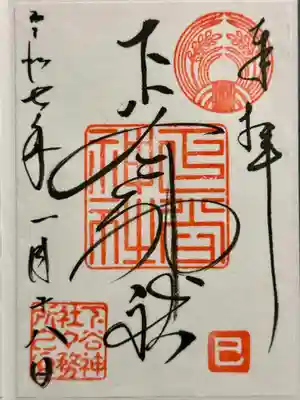 奉拝
下谷神社
下谷神社
令和七年一月十八日
下谷神
社社務
所之印
巳